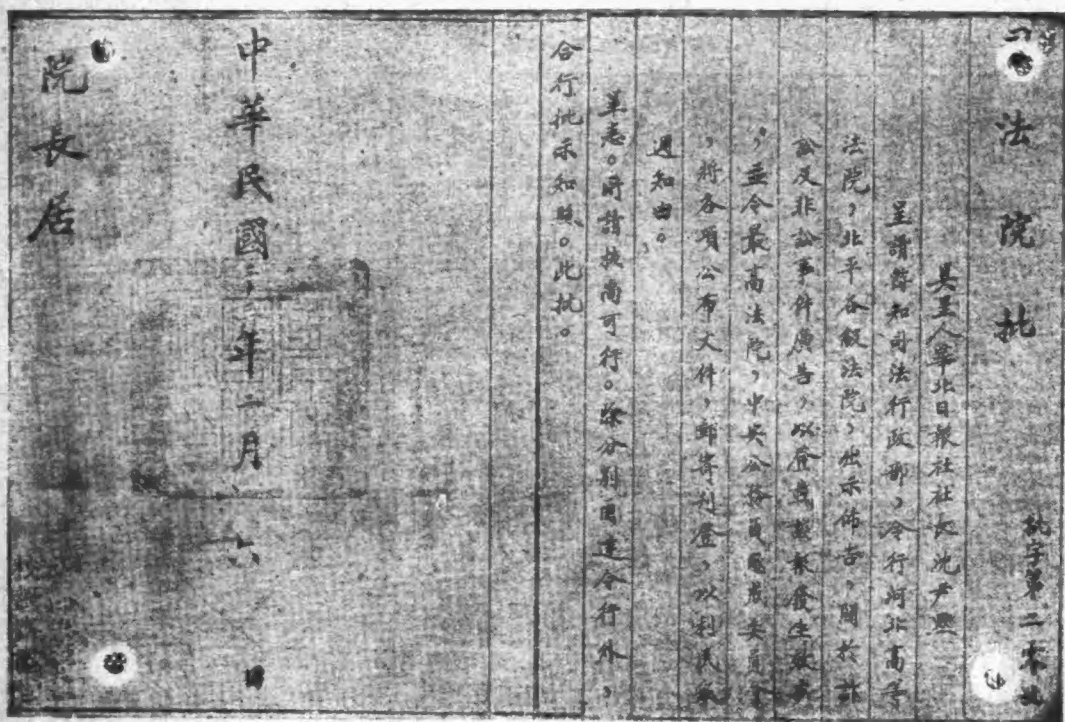 司法院批
批字第二零
具呈人華北日報社社長沈尹默
呈請飭知司法行政部，令行河北高等
法院，北平各級法院，出示佈告，關於訴
訟及非訟事件廣告，以登載報發生效
，並令最高法院，中央公務員懲戒委員會
，將各項公布文件，郵寄刊登，以利民眾
週知由。
呈悉。所請核尚可行。除分別函達令行外，
合行批示知照。此批。
中華民國二十年二月六日
院長居